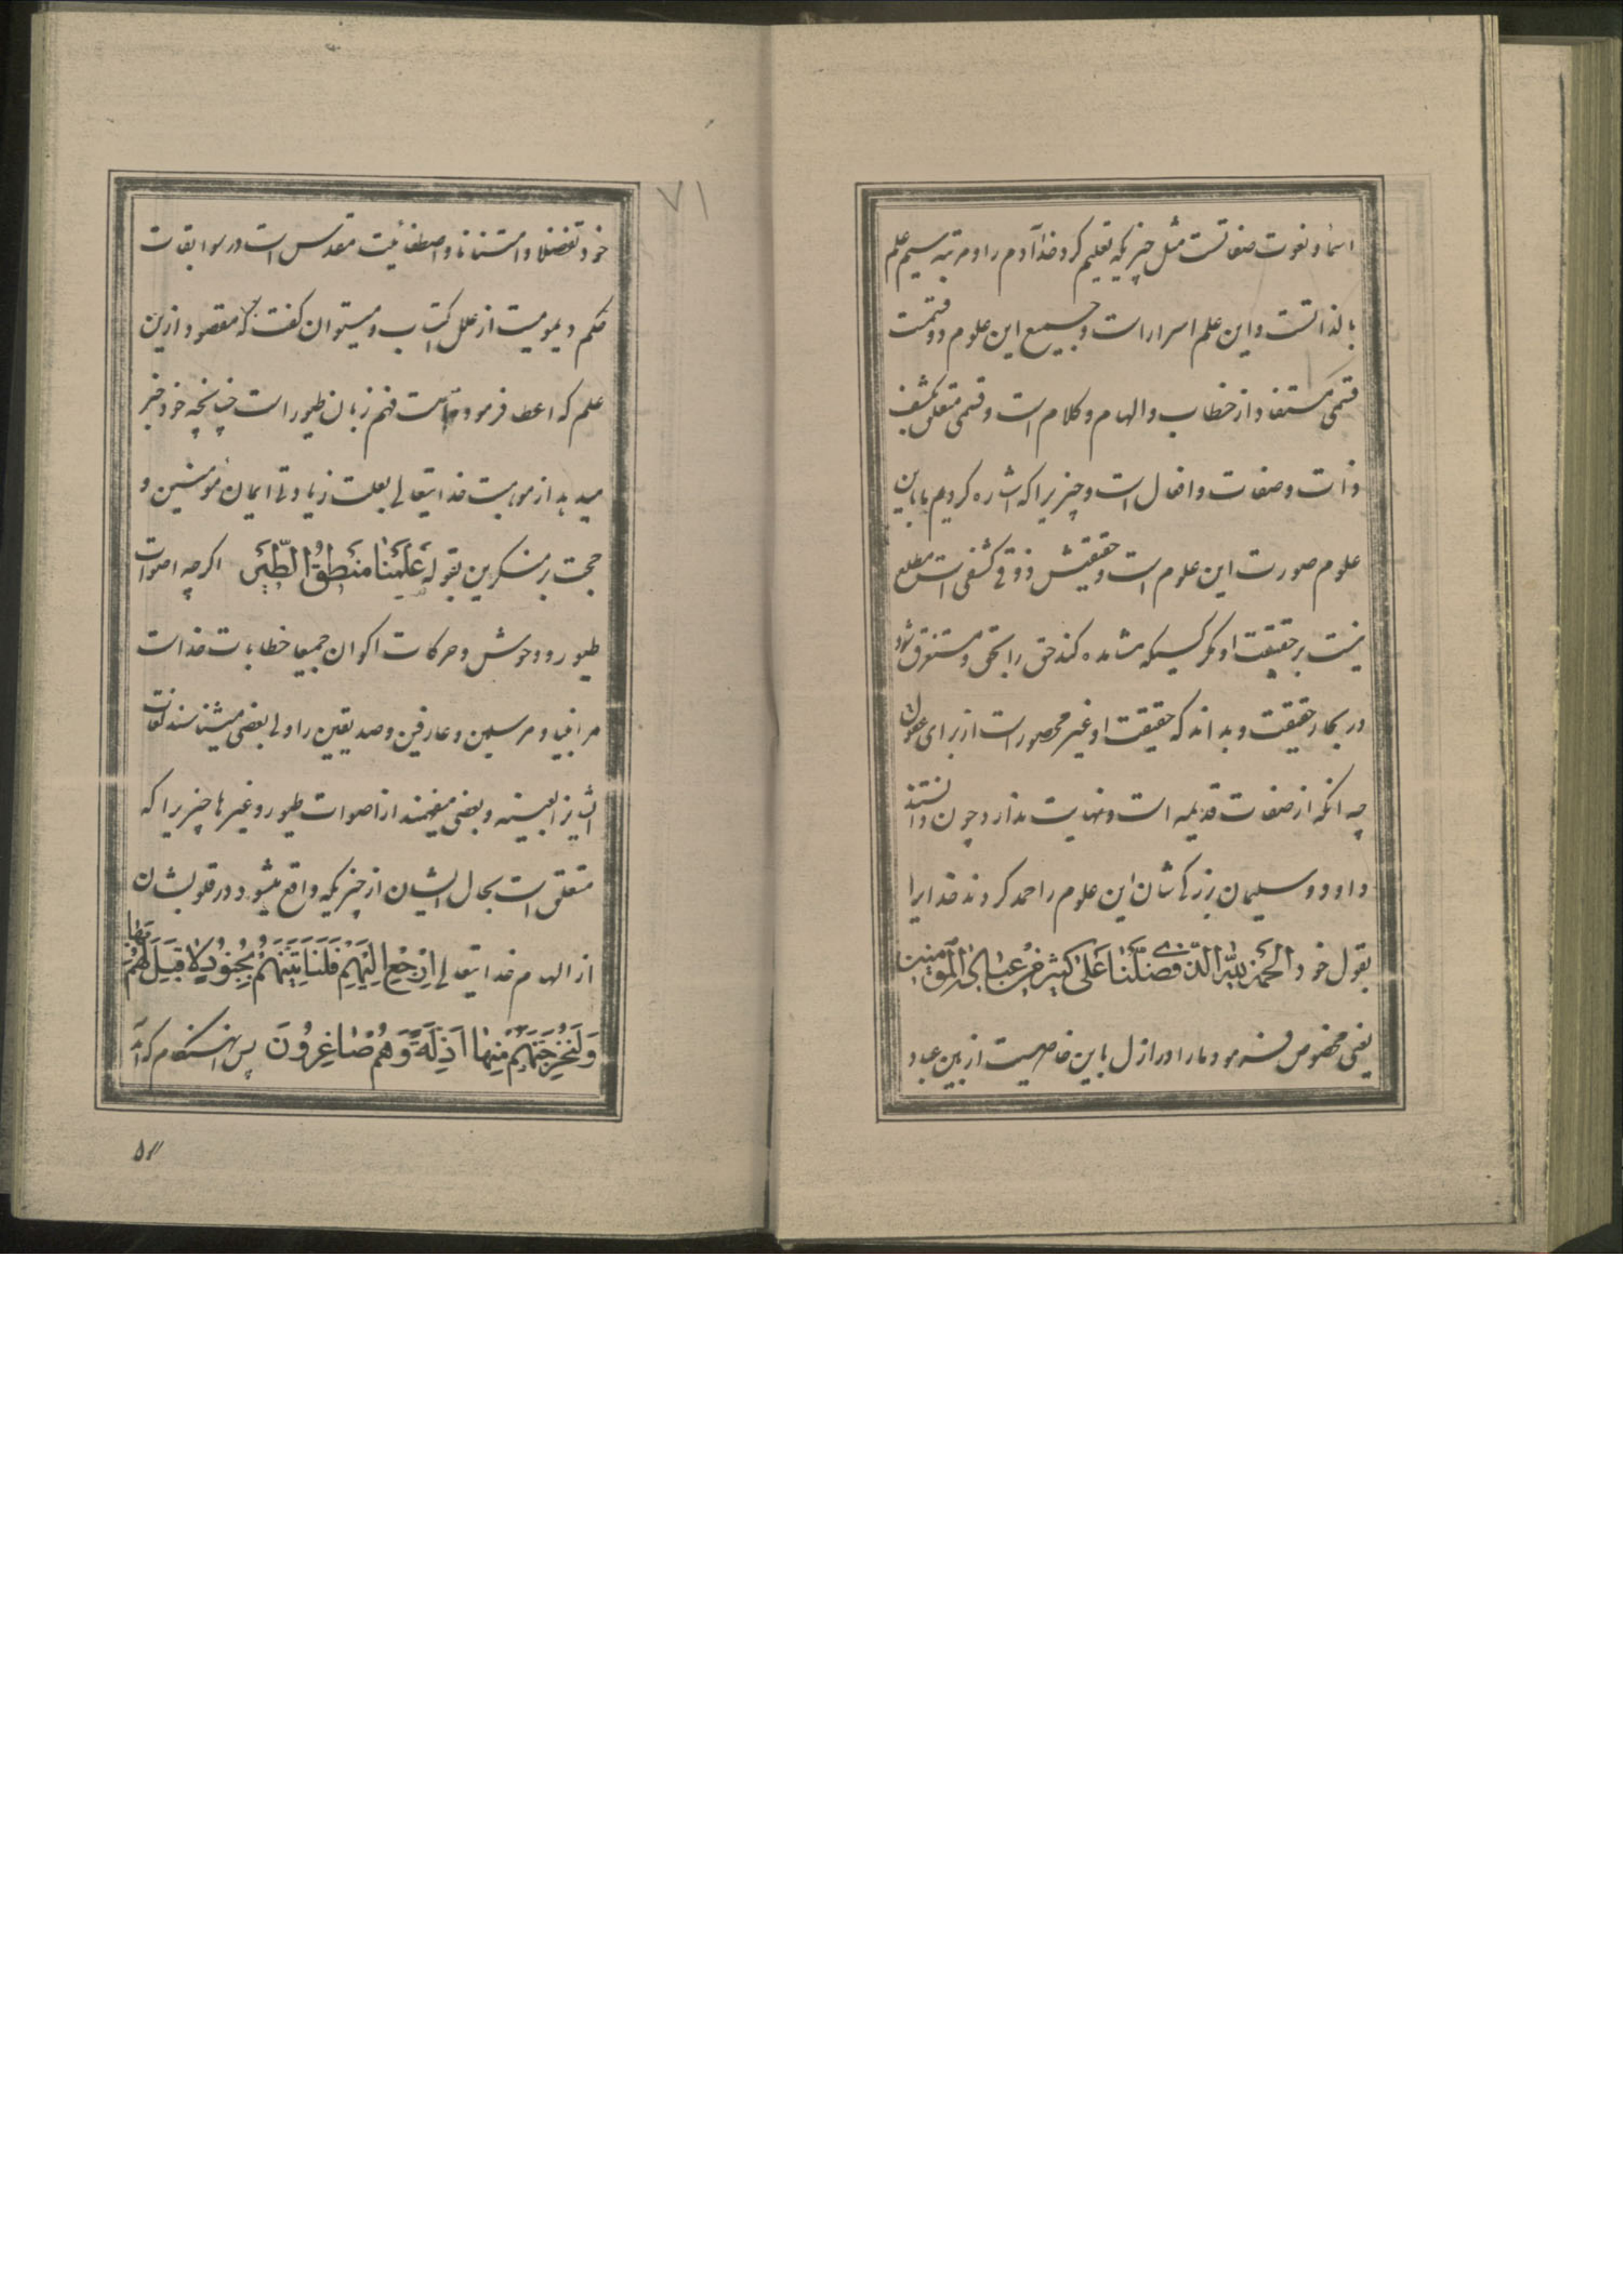 اسماء و نعوت صفاتست مثل چیزیکه تعلیم کرد خدا آدم را و مرتبه سیم علم
بالذاتست و این علم اسرار است و جمیع این علوم دو قسمت
قسمی مستفاد از خطاب و الهام و کلام است و قسمی متعلق بکشف
ذات و صفات و افعال است و چیزیرا که اشاره کردیم بما باین
علوم صورت این علوم است و حقیقتش ذوقی کشفی است مطلع
نیست بر حقیقت او مگر کسیکه مشاهده کند حق را بحق و مستغرق شود
در بحار حقیقت و بداند که حقیقت او غیر محصور است از برای عقول
چه انکه از صفات قدیمه است و نهایت ندارد و چون دانستند
داود و سلیمان بزرگی شان این علوم را حمد کردند خدایرا
بقول خود الحمد لله الذی فضلنا علی کثیر من عباده المؤمنین
یعنی مخصوص فرمود ما را در ازل باین خاصیت از بین عباد
۷۱
خود تفضلا و امتنانا و اصطفائیت مقدس است در سوابقات
حکم دیمومیت از علل اکتساب و میتوان گفت که مقصود ازین
علم که اعطا فرمود فهم زبان طیور است چنانچه خود خبر
میدهد از موهبت خدایتعالی بعلت زیادتی ایمان مؤمنین و
حجت بر منکرین بقوله عَلَّمَنا مَنطِقُ الطَّیرِ اگرچه اصوات
طیور و وحوش و حرکات اکوان جمیعا خطابات خداست
مر انبیا و مرسلین و عارفین و صدیقین را ولی بعضی میشناسند لغات
ایشانرا بعینه و بعضی میفهمند از اصوات طیور و غیرها چیزیرا که
متعلق است بحال ایشان از چیزیکه واقع میشود در قلوبشان
از الهام خدایتعالی اِرْجِعْ اِلَیْهِمْ فَلَنَأتِیَنَّهُمْ بِجُنُودٍ لا قِبَلَ لَهُمْ بِهٰا
وَلَنُخْرِجَنَّهُمْ مِنْهٰا اَذِلَّةً وَهُمْ صٰاغِرُونَ پس هنگام که آمد